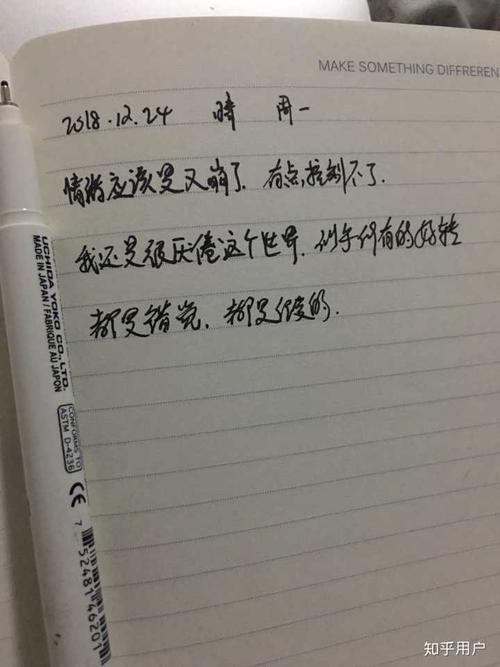 MAKE SOMETHING DIFFRERENT
2018.12.24 晴 周一
情绪应该是又崩了. 有点控制不了.
我还是很厌倦这个世界. 似乎所有的好转
都是错觉. 都是假的.
UCHIDA YOKO CO., LTD.
MADE IN JAPAN / FABRIQUÉ AU JAPON
CONFORMS TO
ASTM D-4236
CE
7 52481 46201
知乎用户